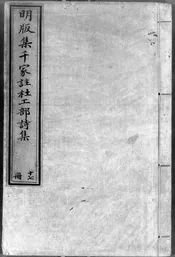 明版集千家註杜工部詩集
冊